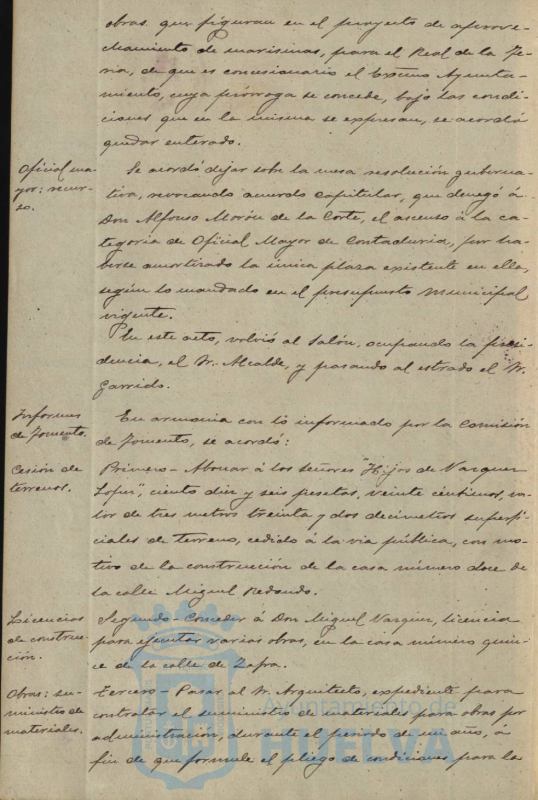 obras que figuran en el proyecto de aprove-
chamiento de marismas, para el Real de la Fe-
ria, de que es concesionario el Excmo Ayunta-
miento, cuya prórroga se concede, bajo las condi-
ciones que en la misma se expresan, se acordó
quedar enterado.
Oficial ma-
yor: recur-
so.
Se acordó dejar sobre la mesa resolución guberna-
tiva, revocando acuerdo capitular, que denegó á
Don Alfonso Morón de la Corte, el ascenso á la ca-
tegoria de Oficial Mayor de Contaduria, por ha-
berse amortizado la única plaza existente en ella,
según lo mandado en el presupuesto municipal
vigente.
En este acto, volvió al Salón, ocupando la presi-
dencia, el Sr. Alcalde, y pasando al estrado el Sr.
Garrido.
Informes
de Fomento.
En armonia con lo informado por la Comisión
de Fomento, se acordó:
Cesión de
terrenos.
Primero- Abonar á los señores "Hijos de Vazquez
Lopez", ciento diez y seis pesetas, veinte céntimos, va-
lor de tres metros treinta y dos decimetros superfi-
ciales de terreno, cedido á la via pública, con mo-
tivo de la construcción de la casa número doce de
la calle Miguel Redondo.
Licencias
de construc-
ción.
Segundo- Conceder á Don Miguel Vazquez, licencia
para ejecutar varias obras, en la casa número quin-
ce de la calle de Zafra.
Obras: su-
ministros de
materiales.
Tercero- Pasar al Sr. Arquitecto, expediente para
contratar el suministro de materiales para obras por
administración, durante el periodo de un año, a
fin de que formule el pliego de condiciones para la
Ayuntamiento de
HUELVA